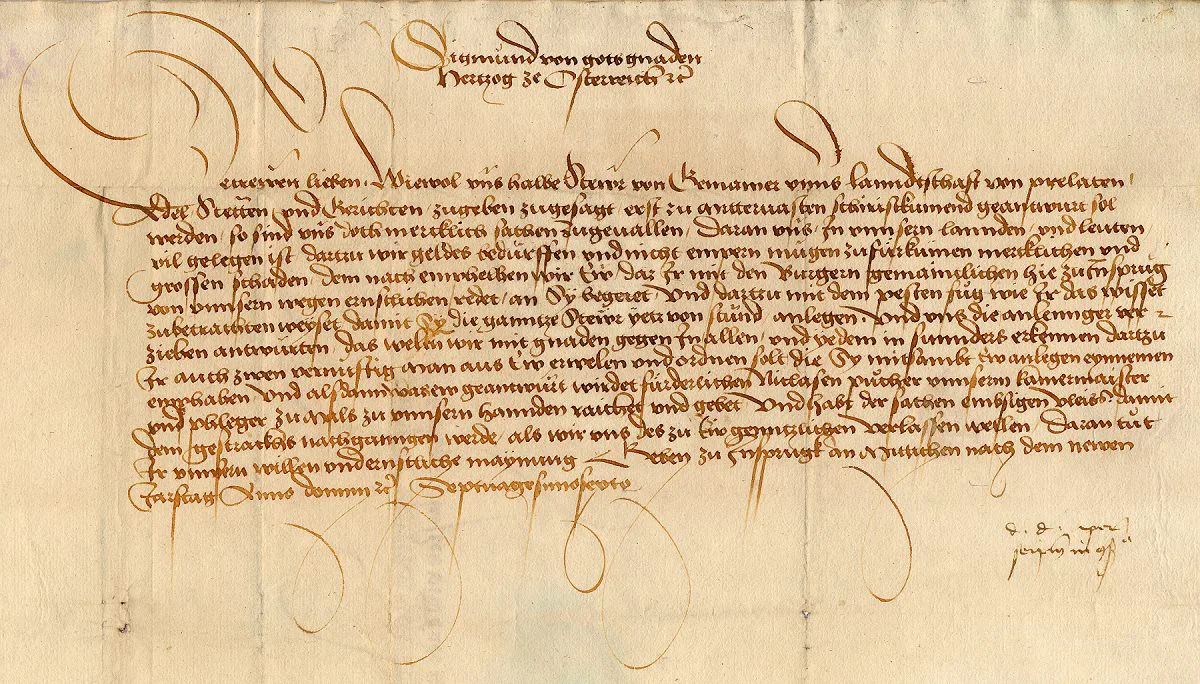 Sigmund von gots gnaden
Hertzog ze Österreich etc
Getrewen lieben. Wiewol uns halbe Stewr von Gemainer unns lanndtschaft von prelaten,
Adel, Stetten und Gerichten, zugeben zugesagt, erst zu mittervasten schiristkumend geantwurt sol
werden, so sind uns doch mercklich sachen zugevallen, daran uns, In unnsern lannden, und leuten,
vil gelegen ist, dartzu wir geldes bedürffen und nicht empern mügen zufürkumen mercklichen und
grossen schaden, dem nach emphelhen wir Ew daz Ir mit den Burgern gemainclichen hie zu Insprug
von unnsern wegen ernstlichen redet, an Sy begeret, Und dartzu mit dem pesten fug wie Ir das wisset
zubetrachten weyset damit Sy die ganntze Stewr yetz von stund anlegen. Und uns die an lennger ver-
ziehen antwurten, das wellen wir mit gnaden gegen In allen, und yedem in sunnders erkennen dartzu
Ir auch zwen vernuftig man aus Ew erwelen und ordnen solt die Sy mitsambt Ew anlegen eynnemen
emphahen Und alsdann was ew geantwurt wirdet fürderlichen Niclasen pucher unnserm kamermaister
und phleger zu Mals zu unnsern hannden raichet und gebet Und habt der sachen embsigen vleis damit
dem gestrackhs nachganngen werde, als wir uns des zu Ew genntzlichen verlassen wellen, daran tut
Ir unnsern willen und ernstliche maynung Geben zu Insprugk an Mittichen nach dem newen
Jarstag Anno domini etc Septuagesimosexto
d. d. per
seipsum in